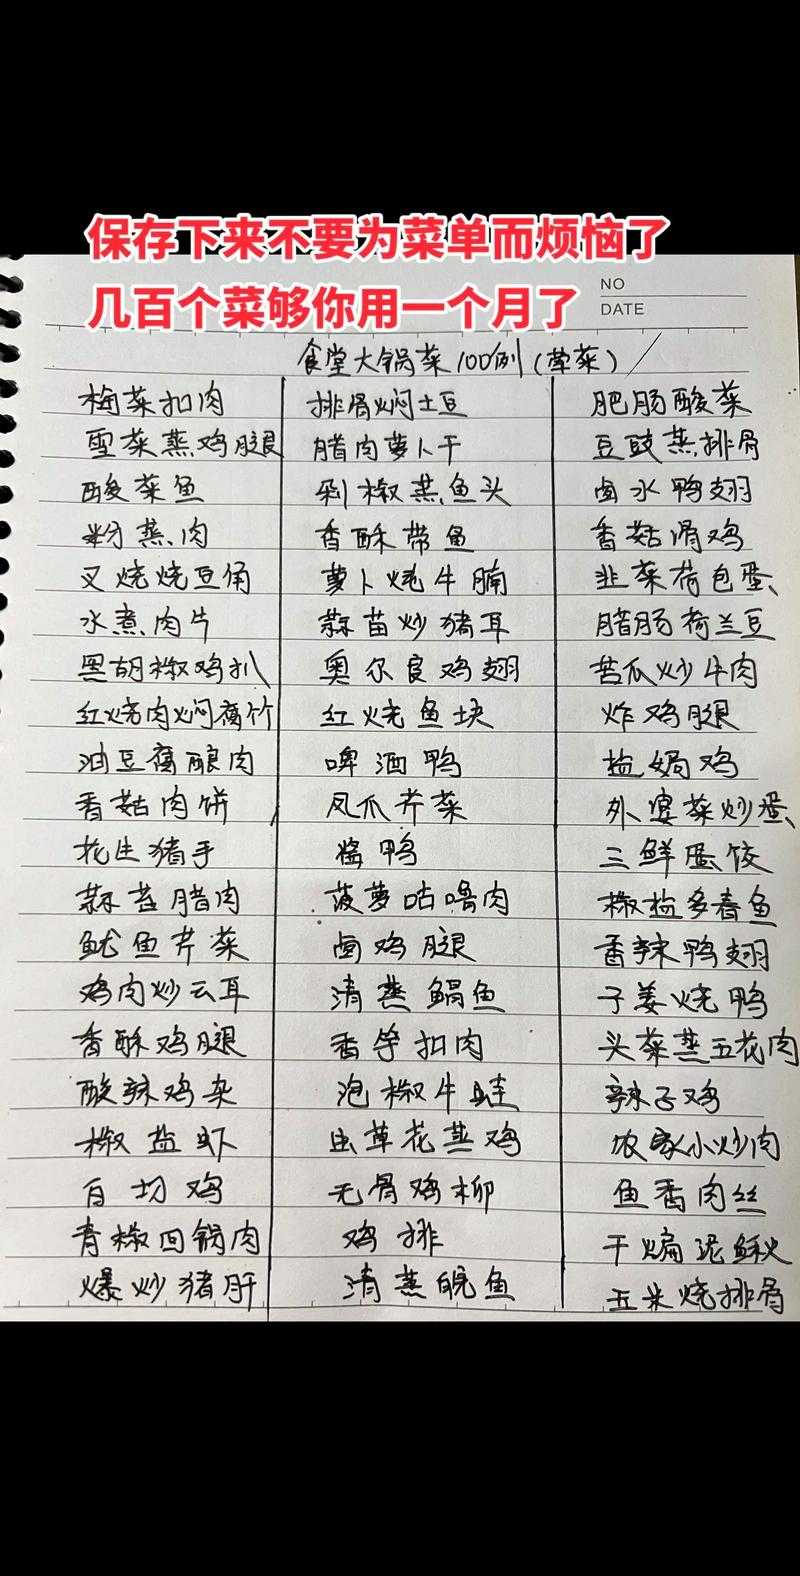 保存下来不要为菜单而烦恼了
几百个菜够你用一个月了
NO
DATE
食堂大锅菜100例(荤菜)
梅菜扣肉
雪菜蒸鸡腿
酸菜鱼
粉蒸肉
叉烧烧豆角
水煮肉片
黑胡椒鸡扒
红烧肉焖腐竹
油豆腐酿肉
香菇肉饼
花生猪手
蒜苔腊肉
鱿鱼芹菜
鸡肉炒云耳
香酥鸡腿
酸辣鸡杂
椒盐虾
白切鸡
青椒回锅肉
爆炒猪肝
排骨焖土豆
腊肉萝卜干
剁椒蒸鱼头
香酥带鱼
萝卜炖牛腩
蒜苗炒猪耳
奥尔良鸡翅
红烧鱼块
啤酒鸭
凤爪芹菜
酱鸭
菠萝咕噜肉
卤鸡腿
清蒸鳊鱼
香芋扣肉
泡椒牛蛙
虫草花蒸鸡
无骨鸡柳
鸡排
清蒸鲩鱼
肥肠酸菜
豆豉蒸排骨
卤水鸭翅
香菇滑鸡
韭菜荷包蛋
腊肠荷兰豆
苦瓜炒牛肉
炸鸡腿
盐焗鸡
外婆菜炒蛋
三鲜蛋饺
椒盐多春鱼
香辣鸭翅
子姜烧鸭
头菜蒸五花肉
辣子鸡
农家小炒肉
鱼香肉丝
干煸泥鳅
玉米烧排骨